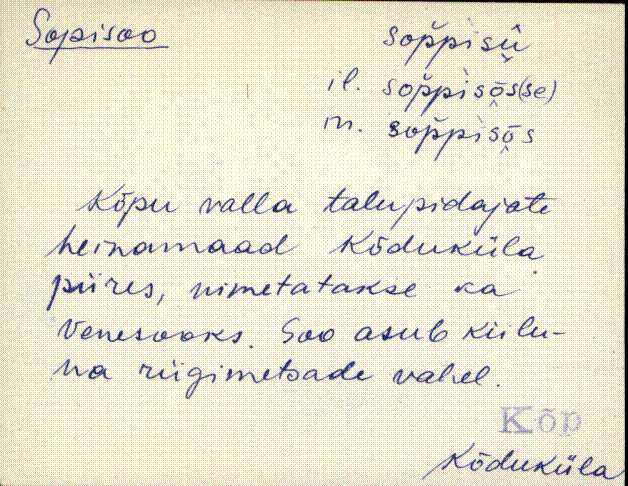 Sopisoo
soppisṷ̄
il. soppisō̭s(se)
in. soppisō̭s
Kõpu valla talupidajate
heinamaad Kõduküla
piires, nimetatakse ka
Venesooks. Soo asub kiilu-
na riigimetsade vahel.
Kõp
Kõduküla